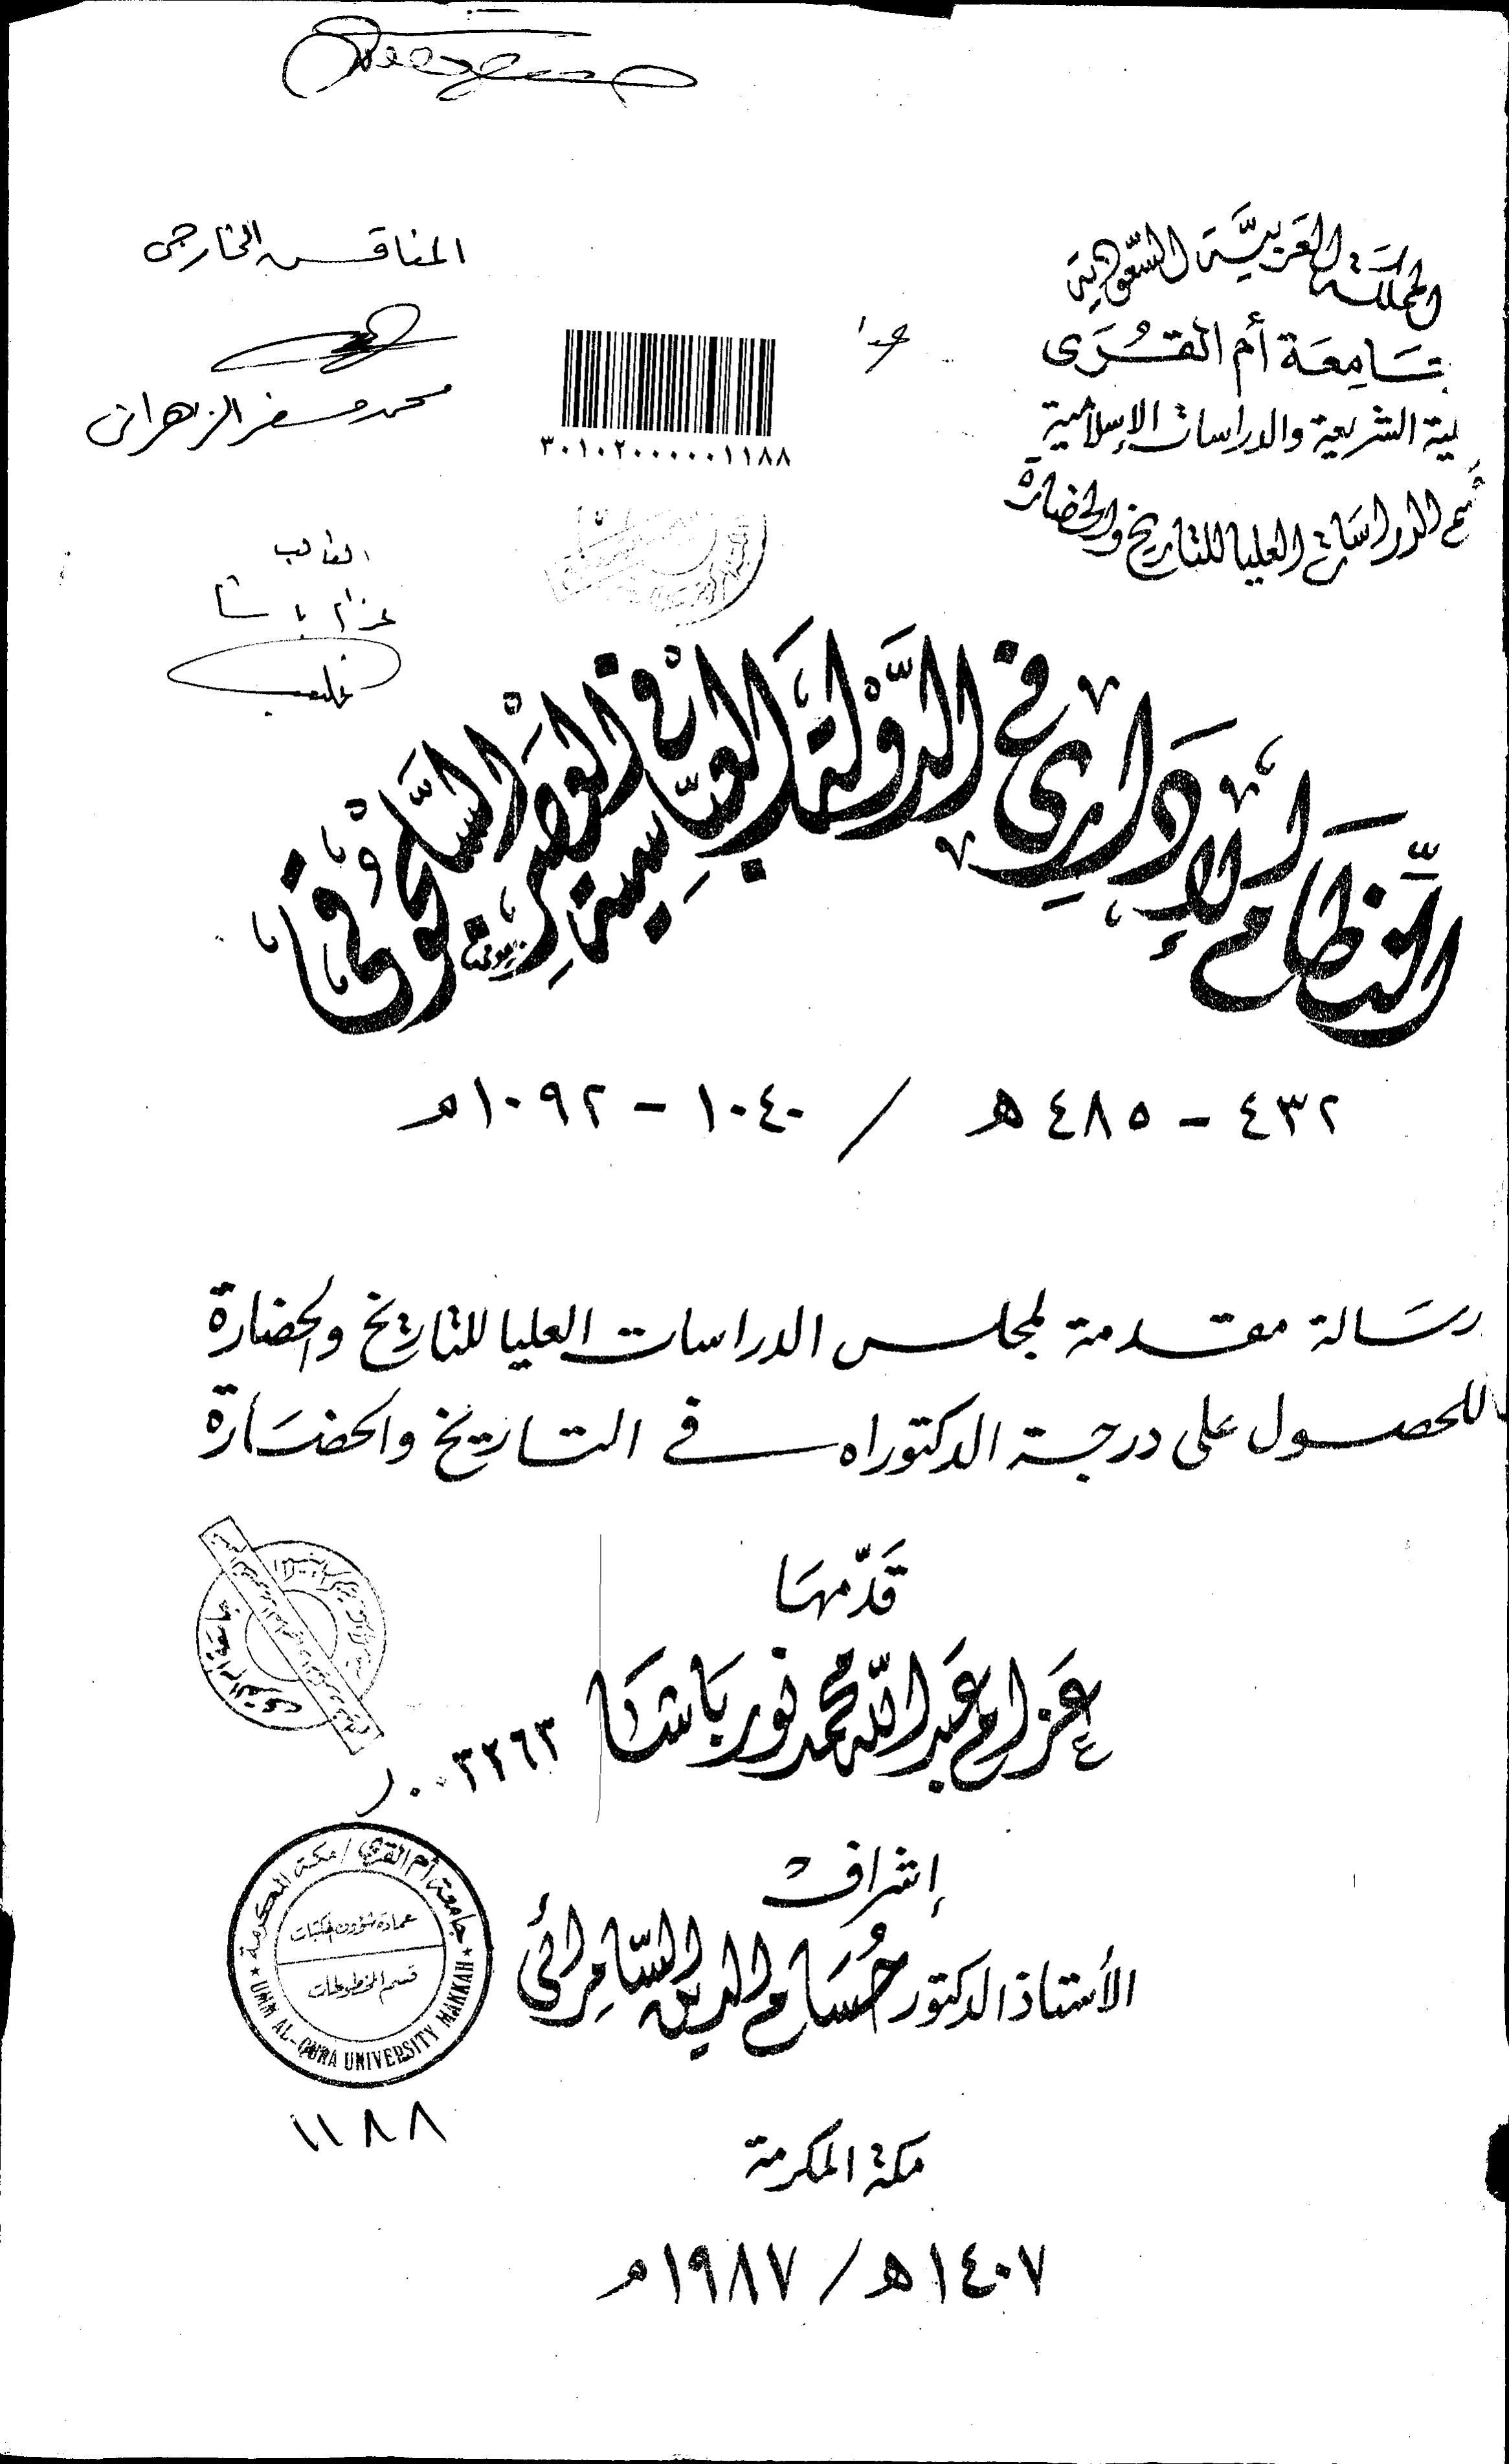 المملكة العربية السعودية
جامعة أم القرى
كلية الشريعة والدراسات الإسلامية
قسم الدراسات العليا للتاريخ والحضارة
المناقش الخارجي
محمد مسفر الزهراني
٣٠١٠٢٠٠٠٠٠١١٨٨
الطالب
عزام باشا
النظام الإداري في الدولة العباسية في العصر السلجوقي
٤٣٢ - ٤٨٥ هـ / ١٠٤٠ - ١٠٩٢م
رسالة مقدمة لمجلس الدراسات العليا للتاريخ والحضارة
للحصول على درجة الدكتوراه في التاريخ والحضارة
قدّمها
عزام عبد الله محمد نور باشا
٠٠٣٢٦٣
إشراف
الأستاذ الدكتور حسام الدين السامرائي
جامعة أم القرى / مكة المكرمة
عمادة شؤون المكتبات
قسم المخطوطات
UMM AL-QURA UNIVERSITY MAKKAH
١١٨٨
مكة المكرمة
١٤٠٧هـ / ١٩٨٧م